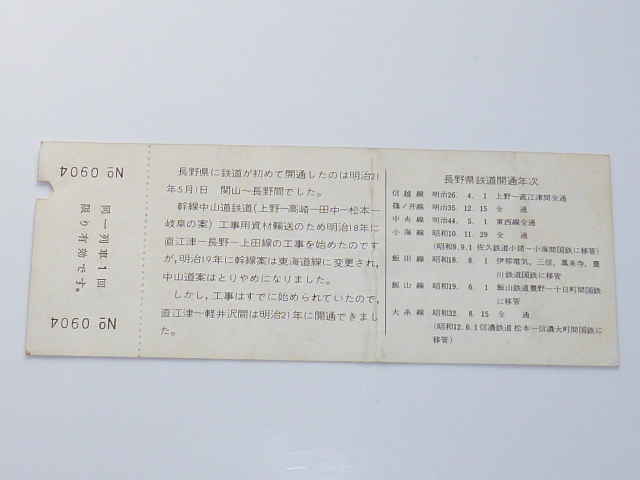 No 0904
同一列車1回
限り有効です。
No 0904
長野県に鉄道が初めて開通したのは明治21
年5月1日 関山〜長野間でした。
幹線中山道鉄道(上野ー高崎ー田中ー松本ー
岐阜の案)工事用資材輸送のため明治18年に
直江津ー長野ー上田線の工事を始めたのです
が,明治19年に幹線案は東海道線に変更され,
中山道案はとりやめになりました。
しかし,工事はすでに始められていたので,
直江津〜軽井沢間は明治21年に開通できまし
た。
長野県鉄道開通年次
信越線 明治26. 4. 1 上野ー直江津間全通
篠ノ井線 明治35. 12. 15 全通
中央線 明治44. 5. 1 東西線全通
小海線 昭和10. 11. 29 全通
(昭和9.9.1 佐久鉄道小諸〜小海間国鉄に移管)
飯田線 昭和18. 8. 1 伊那電気,三信,鳳来寺,豊
川鉄道国鉄に移管
飯山線 昭和19. 6. 1 飯山鉄道豊野ー十日町間国鉄
に移管
大糸線 昭和32. 8. 15 全通
(昭和12.6.1 信濃鉄道 松本〜信濃大町間国鉄に
移管)